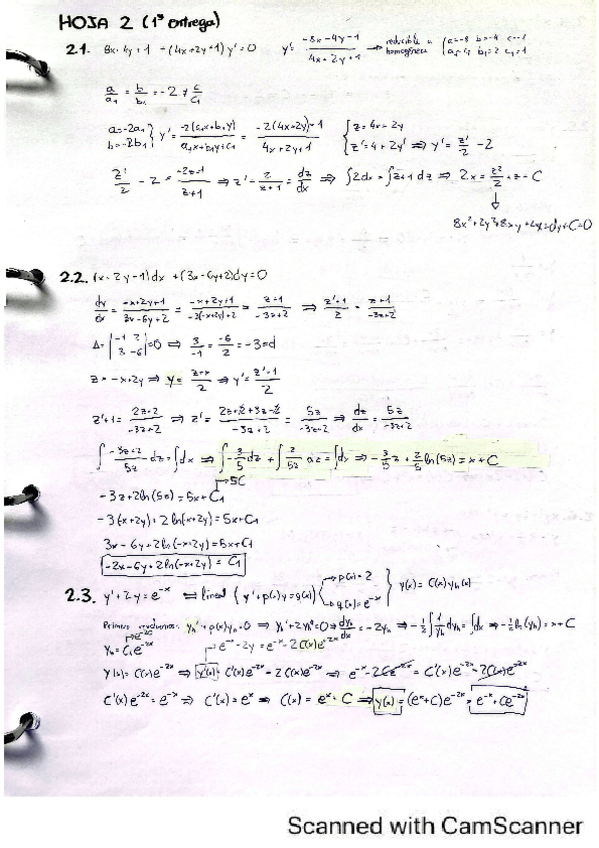 HOJA 2 (1ª entrega)
2.1. 8x+4y+1 + (4x+2y+1) y' = 0 y' = -8x-4y-1 / 4x+2y+1 → reducible a homogénea { a=-8 b=-4 c=-1 a₁=4 b₁=2 c₁=1
a/a₁ = b/b₁ = -2 ≠ c/c₁
a=-2a₁ b=-2b₁ } y' = -2(a₁x+b₁y)-1 / a₁x+b₁y+c₁ = -2(4x+2y)-1 / 4x+2y+1 { z=4x+2y z'=4+2y' ⇒ y' = z'/2 - 2
z'/2 - 2 = -2z-1 / z+1 ⇒ z' = 2/z+1 = dz/dx ⇒ ∫2dx = ∫z+1 dz ⇒ 2x = z²/2 + z - C
8x²+2y²+8xy+2x+2y+C=0
2.2. (x-2y-1)dx + (3x-6y+2)dy=0
dy/dx = -x+2y+1 / 3x-6y+2 = -x+2y+1 / -3(-x+2y)+2 = z+1 / -3z+2 ⇒ z'+1 / 2 = z+1 / -3z+2
Δ = |-1 2 3 -6| = 0 ⇒ 3/-1 = -6/2 = -3 = α
z = -x+2y ⇒ y = z+x / 2 ⇒ y' = z'+1 / 2
z'+1 = 2z+2 / -3z+2 ⇒ z' = 2z+2+3z-2 / -3z+2 = 5z / -3z+2 ⇒ dz/dx = 5z / -3z+2
∫ -3z+2 / 5z dz = ∫dx ⇒ ∫ -3/5 dz + ∫ 2/5z dz = ∫dx ⇒ -3/5 z + 2/5 ln(5z) = x+C
→5C
-3z+2ln(5z) = 5x+C₁
-3(-x+2y)+2ln(-x+2y) = 5x+C₁
3x-6y+2ln(-x+2y) = 5x+C₁
-2x-6y+2ln(-x+2y) = C₁
2.3. y'+2y = e⁻ˣ ⇔ lineal { y'+p(x)y=q(x) → p(x)=2 → q(x)=e⁻ˣ } y(x) = C(x)yₕ(x)
Primero resolvemos: yₕ'+p(x)yₕ=0 ⇒ yₕ'+2yₕ=0 ⇒ dyₕ/dx = -2yₕ ⇒ -1/2 ∫ 1/yₕ dyₕ = ∫dx ⇒ -1/2 ln(yₕ) = x+C
yₕ = C₁e⁻²ˣ → e⁻ˣ-2y = e⁻ˣ-2C(x)e⁻²ˣ
y(x) = C(x)e⁻²ˣ ⇒ y'(x) = C'(x)e⁻²ˣ-2C(x)e⁻²ˣ ⇒ e⁻ˣ-2Ce⁻²ˣ = C'(x)e⁻²ˣ-2C(x)e⁻²ˣ
C'(x)e⁻²ˣ = e⁻ˣ ⇒ C'(x) = eˣ ⇒ C(x) = eˣ+C ⇒ y(x) = (eˣ+C)e⁻²ˣ = e⁻ˣ+Ce⁻²ˣ
Scanned with CamScanner